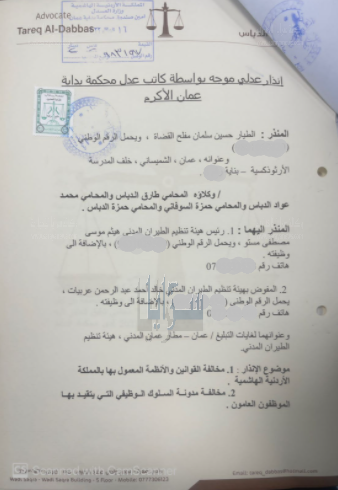 Advocate
Tareq Al-Dabbas
إنذار عدلي موجه بواسطة كاتب عدل محكمة بداية
عمان الأكرم
المنذر : الطيار حسين سلمان مفلح القضاة ، ويحمل الرقم الوطني
وعنوانه ، عمان ، الشميساني ، خلف المدرسة
الأرثوذكسية – بناية
/ وكلاؤه المحامي طارق الدباس والمحامي محمد
عواد الدباس والمحامي حمزة السوفاني والمحامي حمزة الدباس .
المنذر اليهما : 1. رئيس هيئة تنظيم الطيران المدني هيثم موسى
مصطفى مستو ، ويحمل الرقم الوطني ( ) ، بالإضافة الى
وظيفته .
هاتف رقم 07
2. المفوض بهيئة تنظيم الطيران المدني خالد احمد عبد الرحمن عربيات ،
يحمل الرقم الوطني ( ) ، بالإضافة الى وظيفته .
هاتف رقم 0
وعنوانهما لغايات التبليغ / عمان – مطار عمان المدني ، هيئة تنظيم
الطيران المدني.
موضوع الإنذار : 1. مخالفة القوانين والأنظمة المعمول بها بالمملكة
الأردنية الهاشمية .
2. مخالفة مدونة السلوك الوظيفي التي يتقيد بها
الموظفون العامون .